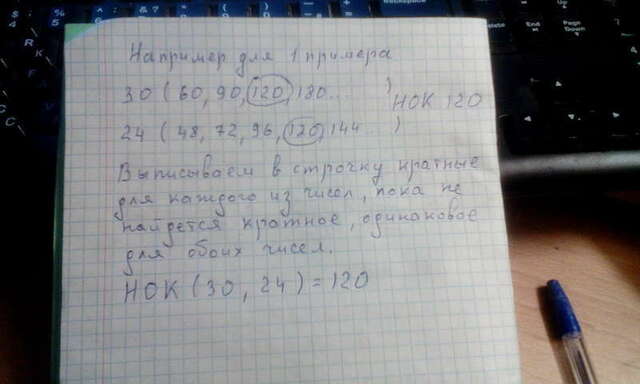 Например для 1 примера
30 (60, 90, 120, 180... ) НОК 120
24 (48, 72, 96, 120, 144... )
Выписываем в строчку кратные
для каждого из чисел, пока не
найдется кратное, одинаковое
для обоих чисел.
НОК (30, 24) = 120